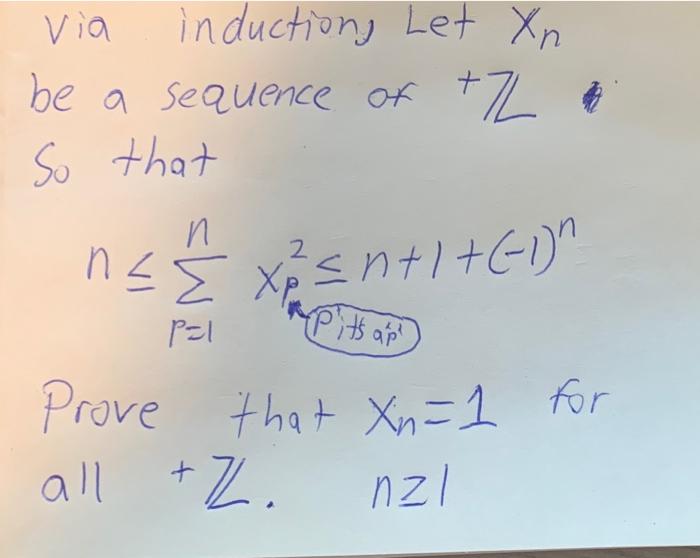 Via induction, Let Xn
be a sequence of +ℤ
So that
n ≤ n∑p=1 xp² ≤ n+1+(-1)ⁿ
p its a 'p'
Prove that Xn=1 for
all +ℤ. n≥1